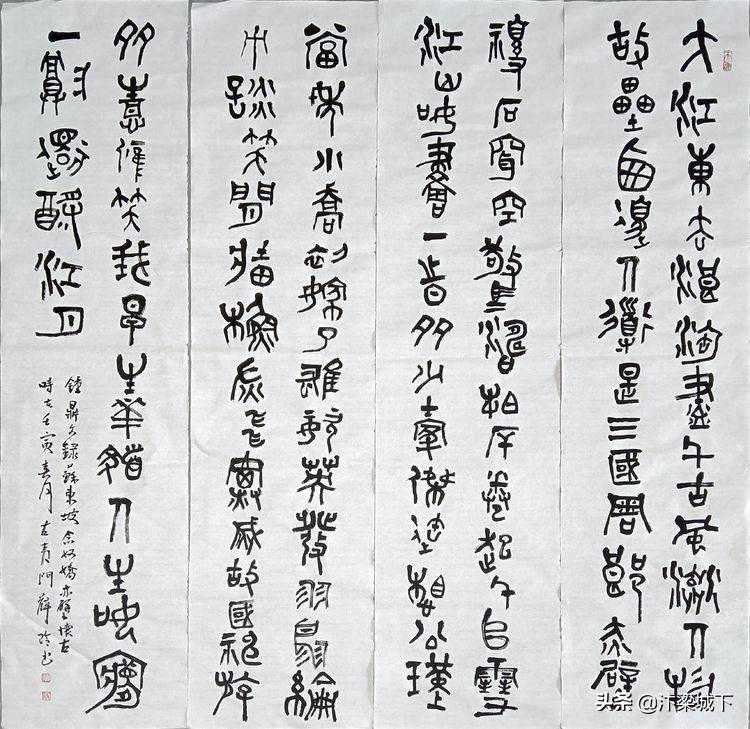 大江東去浪淘盡千古風流人物
故壘西邊人道是三國周郎赤壁
亂石穿空驚濤拍岸卷起千堆雪
江山如畫一時多少豪傑遥想公瑾
當年小喬初嫁了雄姿英發羽扇綸
巾談笑間檣櫓灰飛煙滅故國神游
多情應笑我早生華髮人生如夢
一尊還酹江月
鐘鼎文錄蘇東坡念奴嬌赤壁懷古
時在壬寅春月古青門薛書
头条 @汴梁城下